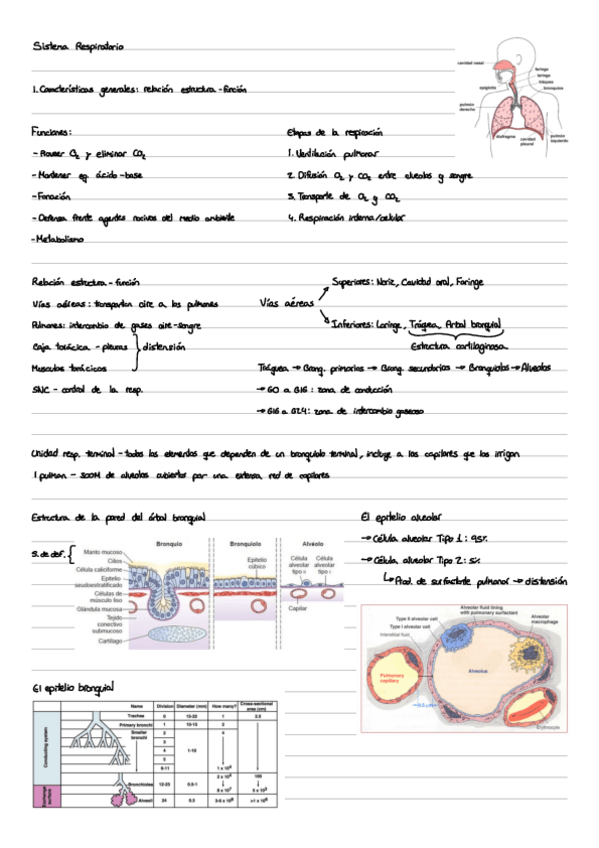 Sistema Respiratorio
1. Características generales: relación estructura-función
cavidad nasal
faringe
laringe
epiglotis
tráquea
bronquios
pulmón derecho
diafragma
cavidad pleural
pulmón izquierdo
Funciones:
- Proveer O2 y eliminar CO2
- Mantener eq. ácido-base
- Fonación
- Defensa frente agentes nocivos del medio ambiente
- Metabolismo
Etapas de la respiración
1. Ventilación pulmonar
2. Difusión O2 y CO2 entre alveolos y sangre
3. Transporte de O2 y CO2
4. Respiración interna/celular
Relación estructura-función
Vías aéreas: transportan aire a los pulmones
Pulmones: intercambio de gases aire-sangre
Caja torácica - pleuras
Músculos torácicos
distensión
SNC - control de la resp.
Vías aéreas
Superiores: Nariz, Cavidad oral, Faringe
Inferiores: Laringe, Tráquea, Árbol bronquial
Estructura cartilaginosa
Tráquea → Bronq. primarios → Bronq. secundarios → Bronquiolos → Alveolos
→ G0 a G16: zona de conducción
→ G16 a G24: zona de intercambio gaseoso
Unidad resp. terminal - todos los elementos que dependen de un bronquiolo terminal, incluye a los capilares que los irrigan
1 pulmón - 300M de alveolos cubiertos por una extensa red de capilares
Estructura de la pared del árbol bronquial
S. de def.
Bronquio
Bronquiolo
Alvéolo
Manto mucoso
Cilios
Célula caliciforme
Epitelio seudoestratificado
Células de músculo liso
Glándula mucosa
Tejido conectivo submucoso
Cartílago
Epitelio cúbico
Célula alveolar tipo II
Célula alveolar tipo I
Capilar
El epitelio alveolar
→ Célula alveolar Tipo 1: 95%
→ Célula alveolar Tipo 2: 5%
Prod. de surfactante pulmonar → distensión
Alveolar fluid lining with pulmonary surfactant
Type II alveolar cell
Type I alveolar cell
Interstitial fluid
Alveolar macrophage
Alveolus
Pulmonary capillary
Erythrocyte
El epitelio bronquial
Name Division Diameter (mm) How many? Cross-sectional area (cm)
Conducting system
Trachea 0 15-22 1 2.5
Primary bronchi 1 10-15 2
Smaller bronchi 2 4
3
4 1-10
5
6-11 1 x 10⁴
Bronchioles 12-23 0.5-1 2 x 10⁴ 100
8 x 10⁷ 5 x 10³
Exchange surface
Alveoli 24 0.3 3-6 x 10⁸ >1 x 10⁶